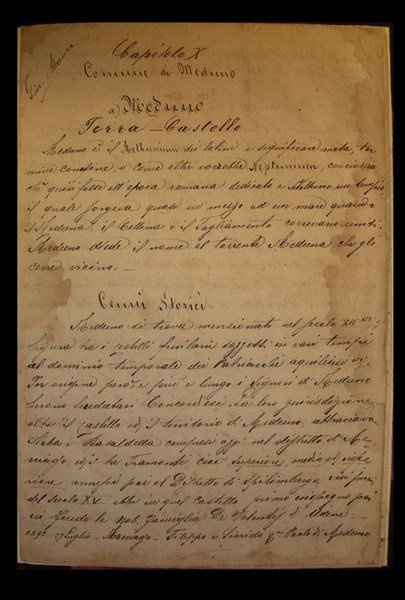 Giov. Marin
Capitolo X
Comune di Meduno
a) Meduno
Terra – Castello
Meduno è il Methunium dei latini a significare meta, ter-
mine confine, o come altri vorrebbe Neptunium, conciossia
chè quivi fosse all'epoca romana dedicato a Nettuno un tempio
il quale sorgeva quasi in mezzo ad un mare quando
il Meduna, il Cellina e il Tagliamento correvano uniti.
Meduno diede il nome al torrente Meduna che gli
corre vicino. —
Cenni Storici
Meduno si trova menzionato nel secolo XII
figura fra i castelli friulani soggetti in vari tempi
al dominio temporale dei Patriarchi aquileiesi
In origine però e per lungo i signori di Meduno
furono feudatari Concordiesi. La loro giurisdizione
oltre il castello ed il territorio di Meduno, abbracciava
Erba i Chiasaldetta compresi oggi nel distretto di Ma-
niago, ed i tre Tramonti cioè superiore, medio ed infe-
riore annessi poi al Distretto di Spilimbergo. Sui primi
del secolo XV ebbe in quel Castello primo
in feudo la Nob. Famiglia De Valentis di Udine
1293. 27 Luglio – Maniago – Filippo e Vivido qm Paolo di Meduno